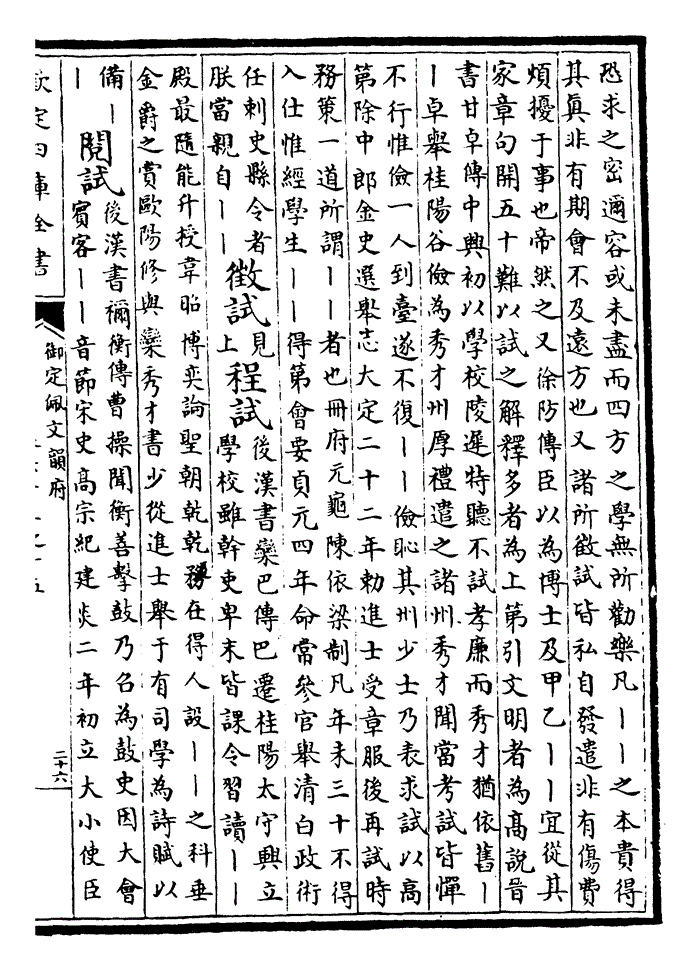 恐求之密邇容或未盡而四方之學無所勸樂凡｜｜之本貴得
其真非有期會不及遠方也又諸所徵試皆私自發遣非有傷費
煩擾于事也帝然之又徐防傳臣以為博士及甲乙｜｜宜從其
家章句開五十難以試之解釋多者為上第引文明者為高說晉
書甘卓傳中興初以學校陵遲特聽不試孝廉而秀才猶依舊｜
｜卓舉桂陽谷儉為秀才州厚禮遣之諸州秀才聞當考試皆憚
不行惟儉一人到臺遂不復｜｜儉恥其州少士乃表求試以高
第除中郎金史選舉志大定二十二年勅進士受章服後再試時
務策一道所謂｜｜者也冊府元龜陳依梁制凡年未三十不得
入仕惟經學生｜｜得第會要貞元四年命常參官舉清白政術
任刺史縣令者
朕當親自｜｜
徵試
見
上
程試
後漢書欒巴傳巴遷桂陽太守興立
學校雖幹吏卑末皆課令習讀｜｜
殿最隨能升授韋昭博奕論聖朝乾乾務在得人設｜｜之科垂
金爵之賞歐陽修與欒秀才書少從進士舉于有司學為詩賦以
備｜
｜
閱試
後漢書禰衡傳曹操聞衡善擊鼓乃召為鼓史因大會
賓客｜｜音節宋史高宗紀建炎二年初立大小使臣
欽定四庫全書
御定佩文韻府
二十六